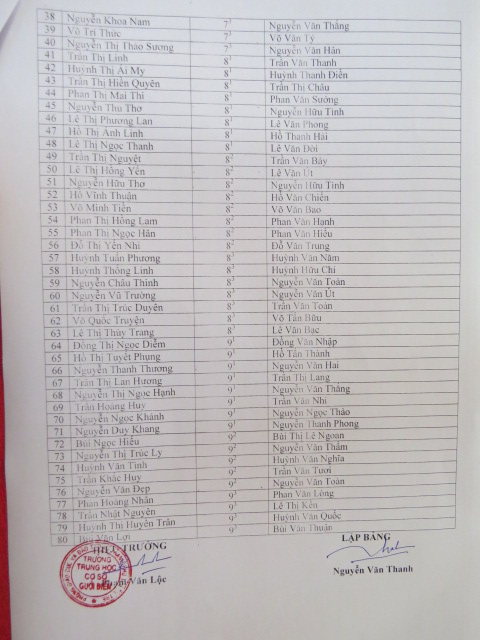 38 Nguyễn Khoa Nam 7³ Nguyễn Văn Thăng
39 Võ Trí Thức 7³ Võ Văn Tý
40 Nguyễn Thị Thảo Sương 7³ Nguyễn Văn Hân
41 Trần Thị Linh 8¹ Trần Văn Thanh
42 Huỳnh Thị Ái My 8¹ Huỳnh Thanh Diễn
43 Trần Thị Hiền Quyên 8¹ Trần Thị Châu
44 Phan Thị Mai Thi 8¹ Phan Văn Sường
45 Nguyễn Thu Thơ 8¹ Nguyễn Hữu Tình
46 Lê Thị Phương Lan 8¹ Lê Văn Phong
47 Hồ Thị Ánh Linh 8¹ Hồ Thanh Hải
48 Lê Thị Ngọc Thanh 8¹ Lê Văn Đời
49 Trần Thị Nguyệt 8² Trần Văn Bảy
50 Lê Thị Hồng Yến 8² Lê Văn Út
51 Nguyễn Hữu Thọ 8² Nguyễn Hữu Tình
52 Hồ Vĩnh Thuận 8² Hồ Văn Chiến
53 Võ Minh Tiến 8² Võ Văn Bao
54 Phan Thị Hồng Lam 8² Phan Văn Hạnh
55 Phan Thị Ngọc Hân 8² Phan Văn Hiếu
56 Đỗ Thị Yến Nhi 8² Đỗ Văn Trung
57 Huỳnh Tuấn Phương 8³ Huỳnh Văn Năm
58 Huỳnh Thông Linh 8³ Huỳnh Hữu Chí
59 Nguyễn Châu Thính 8³ Nguyễn Văn Toàn
60 Nguyễn Vũ Trường 8³ Nguyễn Văn Út
61 Trần Thị Trúc Duyên 8³ Trần Văn Toàn
62 Võ Quốc Truyện 8³ Võ Tấn Bửu
63 Lê Thị Thùy Trang 8³ Lê Văn Bạc
64 Đồng Thị Ngọc Diễm 9¹ Đồng Văn Nhập
65 Hồ Thị Tuyết Phụng 9¹ Hồ Tấn Thành
66 Nguyễn Thanh Thương 9¹ Nguyễn Văn Hai
67 Trần Thị Lan Hương 9¹ Trần Thị Lang
68 Nguyễn Thị Ngọc Hạnh 9¹ Nguyễn Văn Thăng
69 Trần Hoàng Huy 9¹ Trần Văn Nhi
70 Nguyễn Ngọc Khánh 9¹ Nguyễn Ngọc Thảo
71 Nguyễn Duy Khang 9¹ Nguyễn Thanh Phong
72 Bùi Ngọc Hiếu 9² Bùi Thị Lê Ngoan
73 Nguyễn Thị Trúc Ly 9² Nguyễn Văn Thẩm
74 Huỳnh Văn Tình 9² Huỳnh Văn Nghĩa
75 Trần Khắc Huy 9² Trần Văn Tươi
76 Nguyễn Văn Đẹp 9² Nguyễn Văn Toàn
77 Phan Hoàng Nhân 9² Phan Văn Lòng
78 Trần Nhật Nguyên 9² Lê Thị Kến
79 Huỳnh Thị Huyền Trân 9² Huỳnh Văn Quốc
80 Bùi Văn Lợi 9² Bùi Văn Thuận
HIỆU TRƯỞNG
LẬP BẢNG
TRƯỜNG
TRUNG HỌC
CƠ SỞ
Phạm Văn Lộc
Nguyễn Văn Thanh